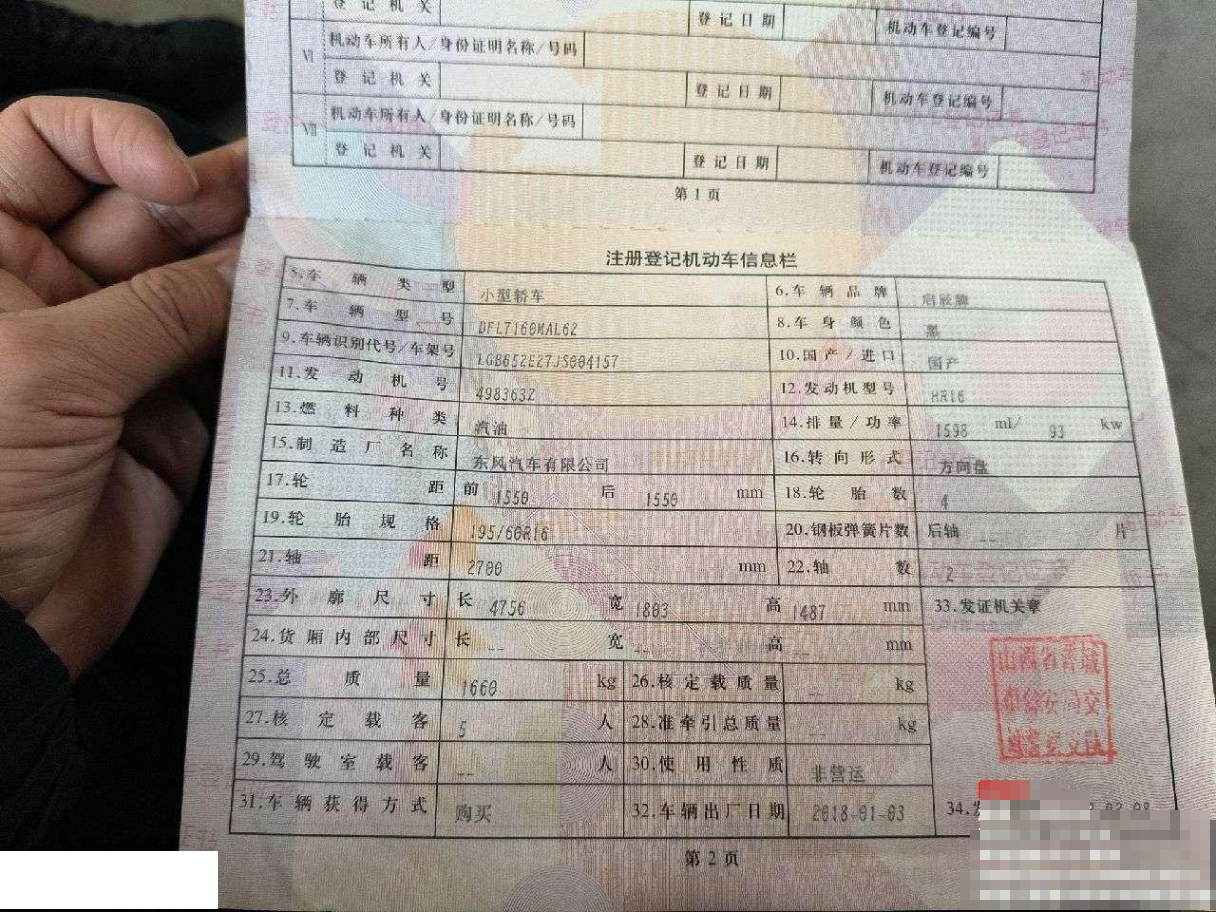 登记机关 登记日期 机动车登记编号
Ⅵ 机动车所有人/身份证明名称/号码
登记机关 登记日期 机动车登记编号
Ⅶ 机动车所有人/身份证明名称/号码
登记机关 登记日期 机动车登记编号
第1页
注册登记机动车信息栏
5.车辆类型 小型轿车 6.车辆品牌 启辰牌
7.车辆型号 DFL7160MAL62 8.车身颜色 黑
9.车辆识别代号/车架号 LGB652E27JS004157 10.国产/进口 国产
11.发动机号 498363Z 12.发动机型号 HR16
13.燃料种类 汽油 14.排量/功率 1598 ml/ 93 kw
15.制造厂名称 东风汽车有限公司 16.转向形式 方向盘
17.轮距 前 1550 后 1550 mm 18.轮胎数 4
19.轮胎规格 195/60R16 20.钢板弹簧片数 后轴 -- 片
21.轴距 2700 mm 22.轴数 2
23.外廓尺寸 长 4756 宽 1803 高 1487 mm 33.发证机关章
24.货厢内部尺寸 长 -- 宽 -- 高 -- mm
山西省晋城
市公安局交
通警察支队
25.总质量 1660 kg 26.核定载质量 -- kg
27.核定载客 5 人 28.准牵引总质量 -- kg
29.驾驶室载客 -- 人 30.使用性质 非营运
31.车辆获得方式 购买 32.车辆出厂日期 2018-01-03 34.发
第2页